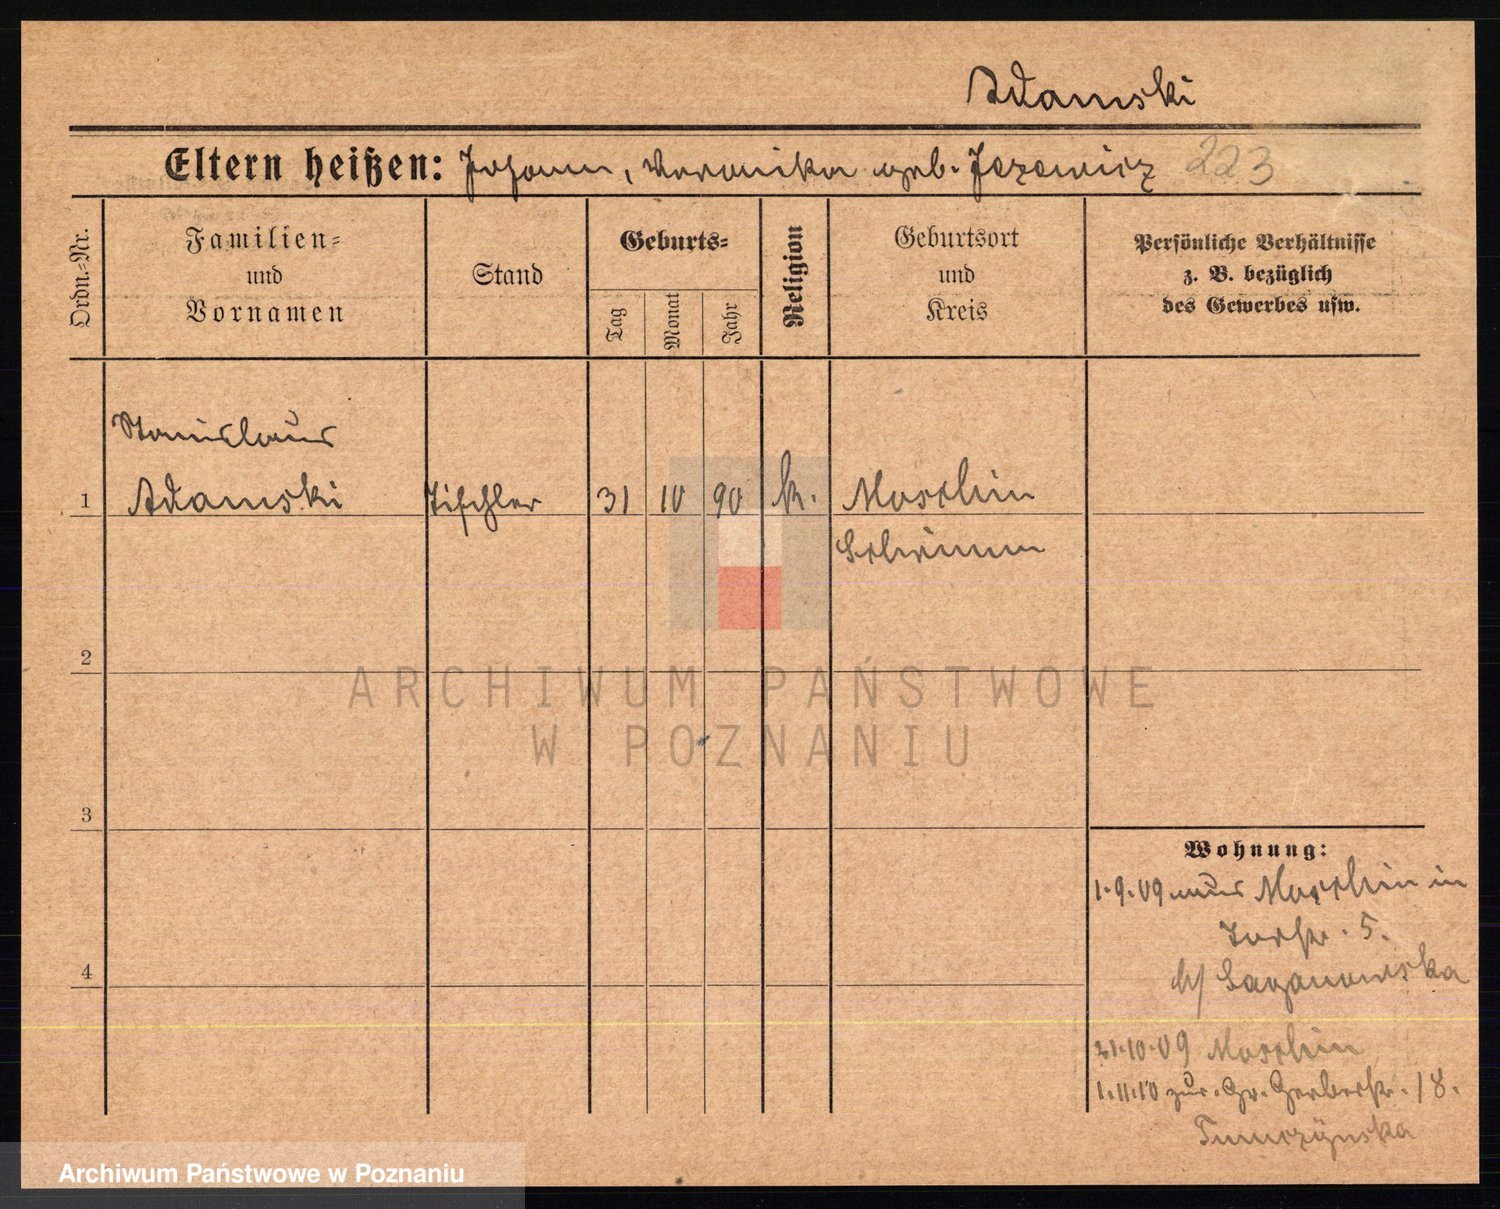 Adamski
Eltern heißen: Johann, Veronika geb. Jezewicz 223
Ordn.-Nr.
Familien-
und
Vornamen
Stand
Geburts-
Tag
Monat
Jahr
Religion
Geburtsort
und
Kreis
Persönliche Verhältnisse
z. B. bezüglich
des Gewerbes usw.
Stanislaus
1 Adamski Tischler 31 10 90 k. Moschin
Schrimm
2
ARCHIWUM PAŃSTWOWE
W POZNANIU
3
Wohnung:
1.9.09 aus Moschin in
Torstr. 5.
b/ Saganowska
4
21.10.09 Moschin
1.11.10 zur. Gr. Gerberstr. 18.
Tumczynska
Archiwum Państwowe w Poznaniu